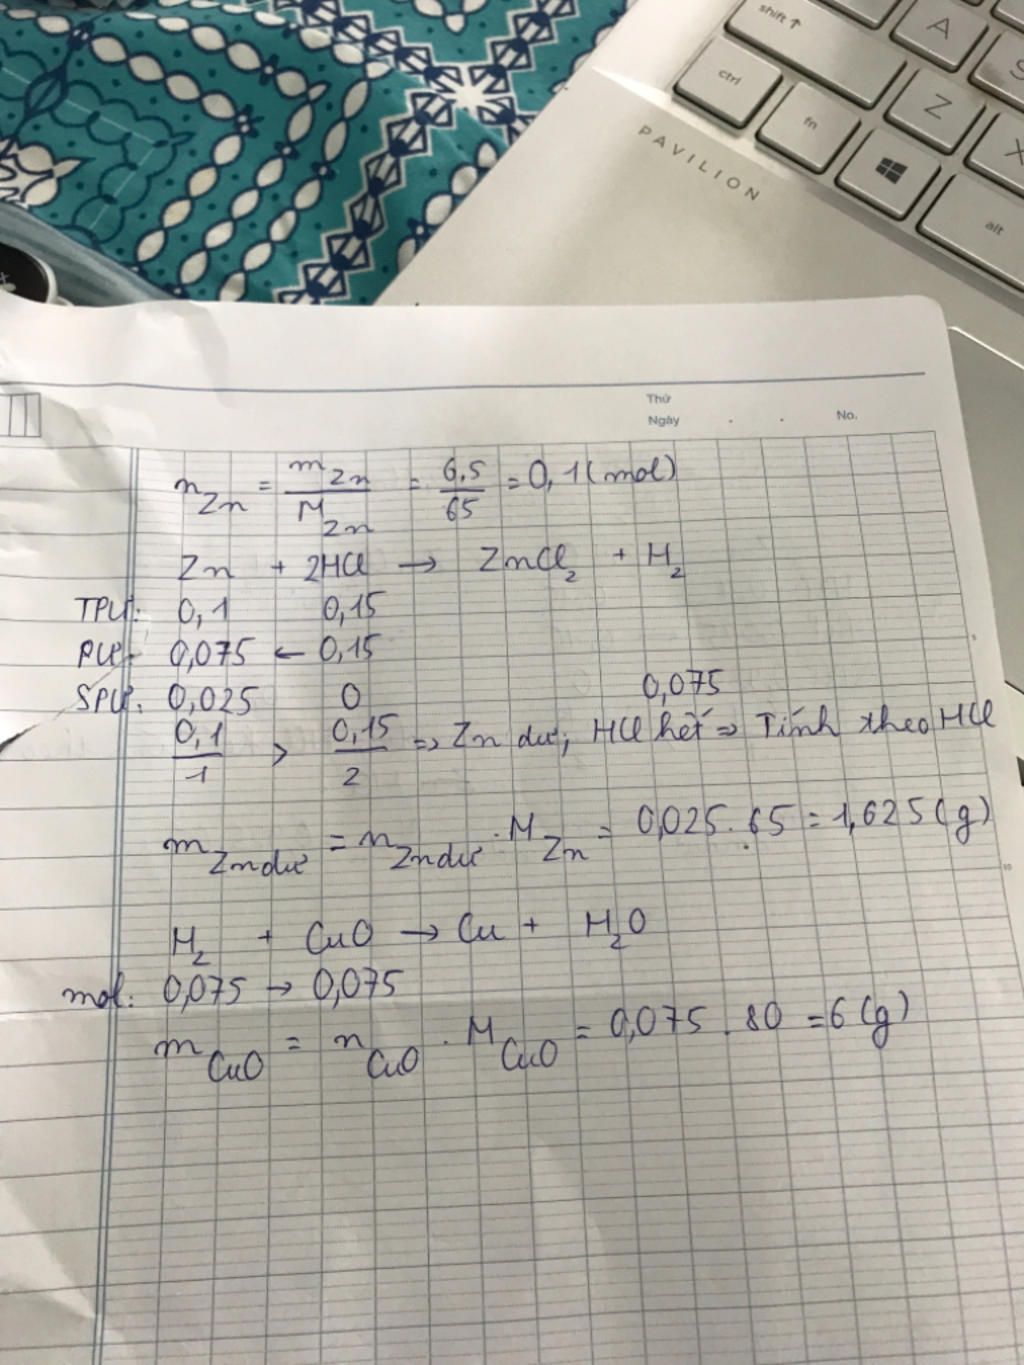 shift ↑
A
S
ctrl
fn
Z
X
alt
PAVILION
Thứ
Ngày . . No.
n_Zn = m_Zn / M_Zn = 6,5 / 65 = 0,1 (mol)
Zn + 2HCl → ZnCl₂ + H₂
TPƯ: 0,1 0,15
PƯ: 0,075 ← 0,15
SPƯ: 0,025 0 0,075
0,1 / 1 > 0,15 / 2 => Zn dư; HCl hết => Tính theo HCl
m_Zn dư = n_Zn dư . M_Zn = 0,025 . 65 = 1,625 (g)
H₂ + CuO → Cu + H₂O
mol: 0,075 → 0,075
m_CuO = n_CuO . M_CuO = 0,075 . 80 = 6 (g)